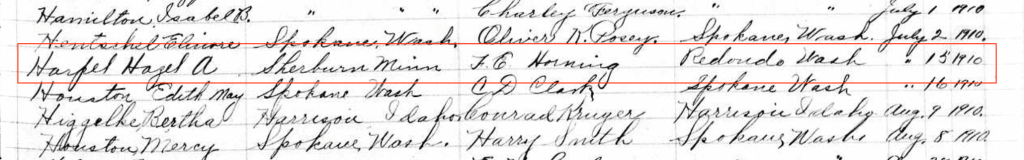 Hamilton, Isabel B. " " " Charley Ferguson. " " July 1 1910
Hentschel Elinore Spokane, Wash. Oliver R. Posey. Spokane, Wash. July 2 1910.
Harpel Hazel A Sherburn Minn F. E. Horning Redondo Wash " 15 1910
Houston Edith May Spokane Wash C D Clark Spokane Wash " 16 1910
Higgelke, Bertha Harrison Idaho Conrad Kruger Harrison Idaho Aug. 9 1910.
Houston Mercy Spokane, Wash. Harry Smith Spokane, Wash. Aug. 8 1910.